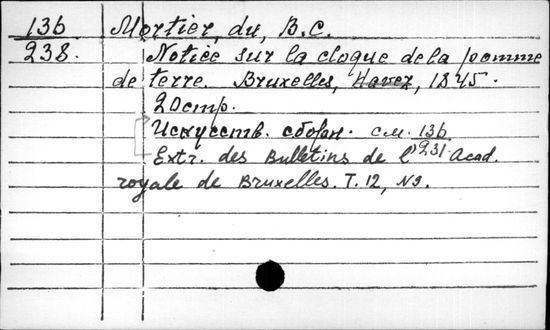 136 Mortier, du, B.C.
238. Notice sur la cloque de la pomme
de terre. Bruxelles, Hayez, 1845.
20 стр.
Искусств. сборн. см. 136
231
Extr. des Bulletins de l' Acad.
royale de Bruxelles. T. 12, N9.